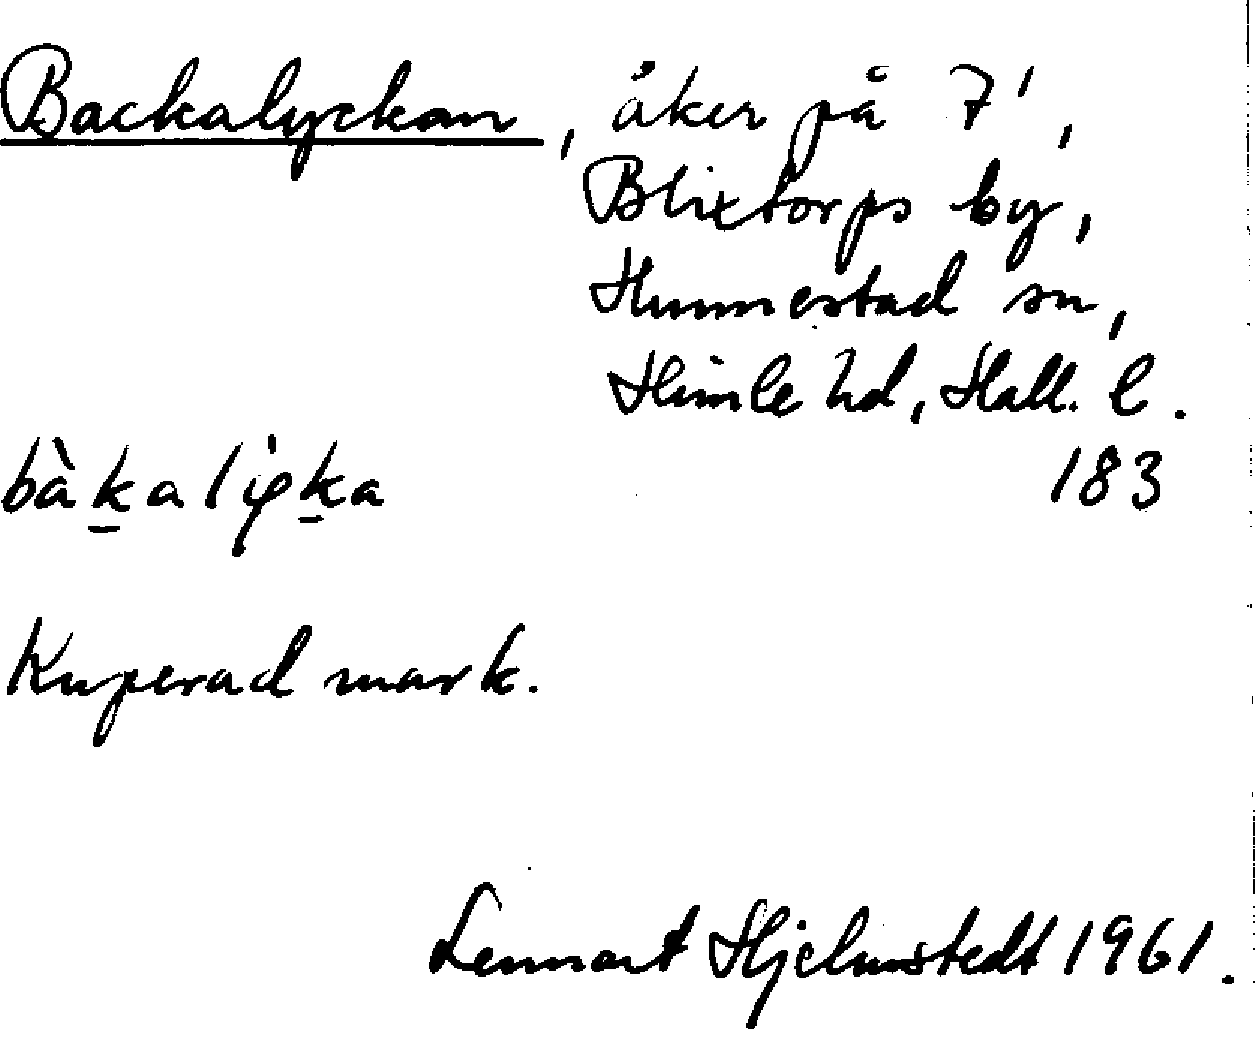 Backalyckan, åker på 7',
Blixtorps by,
Hunnestad sn,
Himle hd, Hall. l.
183
bàkalyka
Kuperad mark.
Lennart Hjelmstedt 1961.